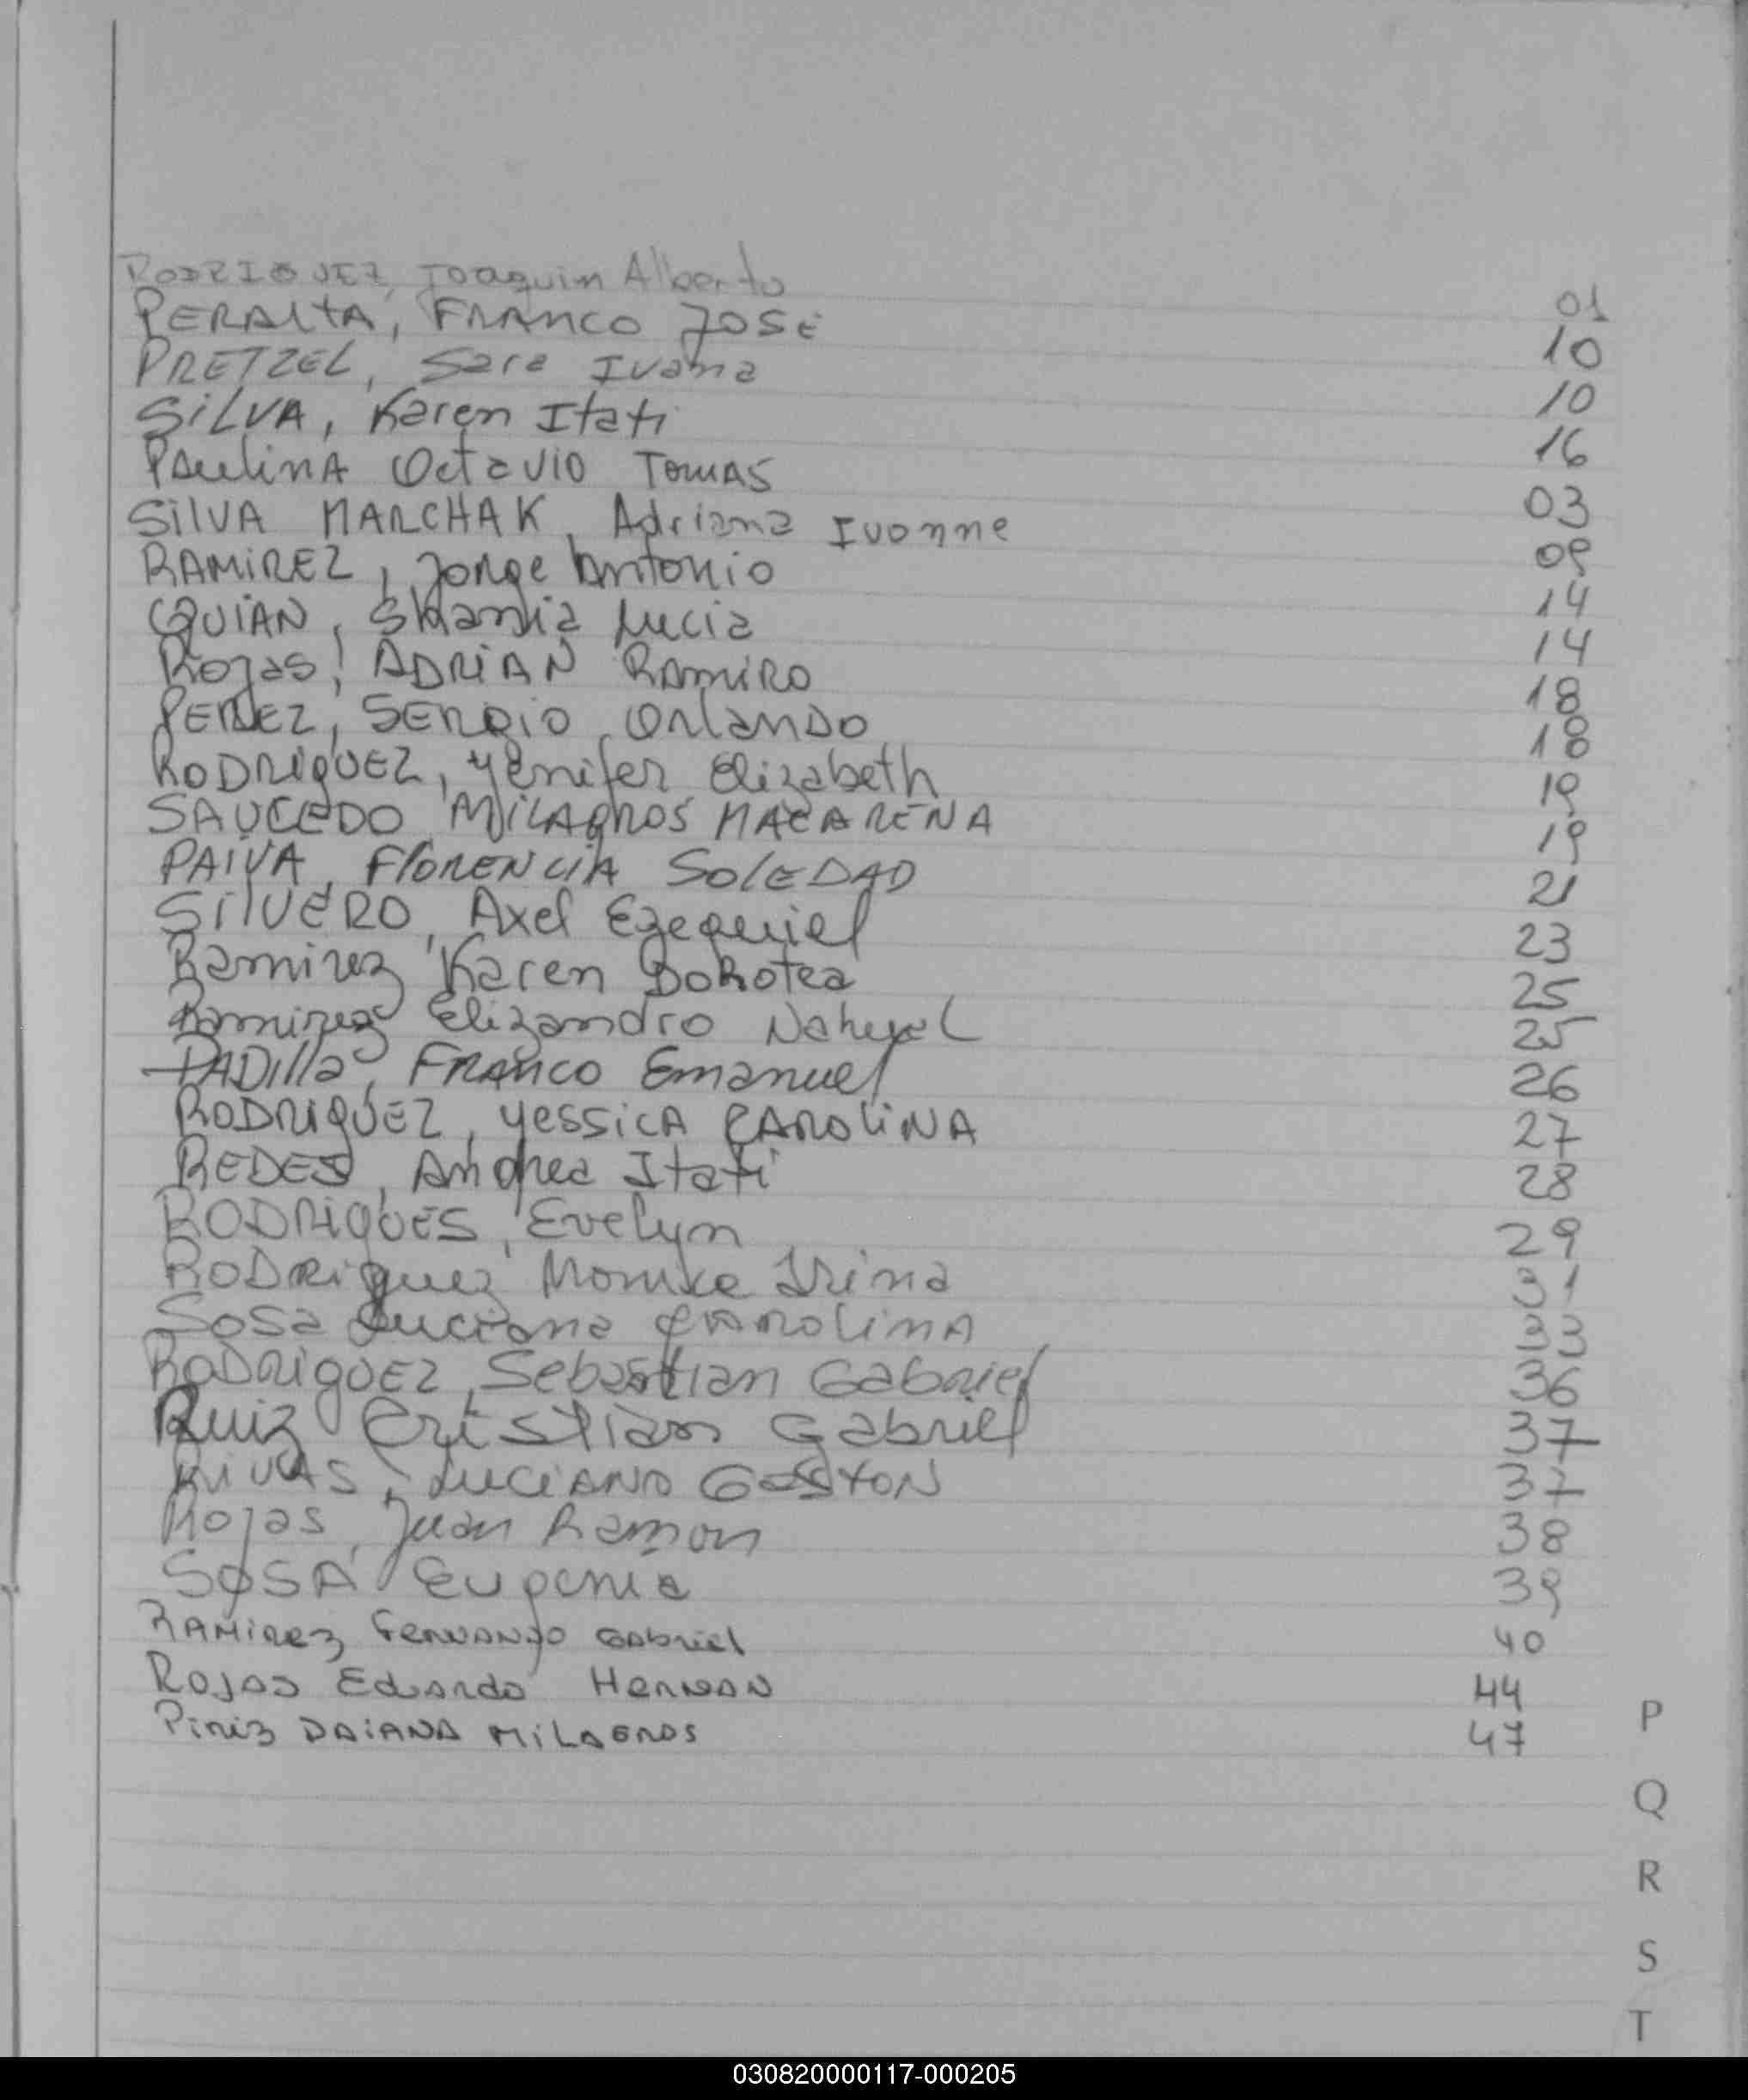 RODRIGUEZ, Joaquin Alberto 01
PERALTA, FRANCO JOSÉ 10
PRETZEL, Sara Ivana 10
SILVA, Karen Itati 16
PAulinA Octavio TomAS 03
SilVA MARCHAK, Adriana Ivonne 09
RAMIREZ, Jorge Antonio 14
QUIAN, Lucia 14
Rojas, ADRIAN RAmiRO 18
PEREZ, SERGIO ORlANDO 18
RODRIGUEZ, yenifer Elizabeth 19
SAUCEDO MILAGROS MACARENA 19
PAIVA, FlORENCIA SOlEDAD 21
SilVERO, Axel Ezequiel 23
Ramirez Karen Dorotea 25
Ramirez Elizandro Nahuel 25
PADilla, FRANCO Emanuel 26
RODRIGUEZ, yessicA CAROliNA 27
REDES, Andrea Itati 28
RODRIGUES, Evelyn 29
RODRiguez Irina 31
Sosa Luciana CAROlinA 33
RODRIGUEZ, Sebastian Gabriel 36
Ruiz Cristian Gabriel 37
RIVAS, LUCIANO GASTON 37
Rojas, Juan Ramon 38
SOSA Eugenia 39
RAMIREZ FERNANDO GAbriel 40
Rojas Eduardo HERNAN 44
Piriz DAIANA MILAGROS 47
P
Q
R
S
T
030820000117-000205